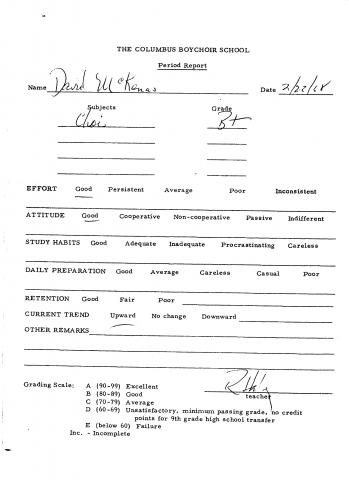 THE COLUMBUS BOYCHOIR SCHOOL
Period Report
Name David McKenas Date 2/22/68
Subjects Grade
Choir B+
EFFORT Good Persistent Average Poor Inconsistent
ATTITUDE Good Cooperative Non-cooperative Passive Indifferent
STUDY HABITS Good Adequate Inadequate Procrastinating Careless
DAILY PREPARATION Good Average Careless Casual Poor
RETENTION Good Fair Poor
CURRENT TREND Upward No change Downward
OTHER REMARKS
teacher
Grading Scale: A (90-99) Excellent
B (80-89) Good
C (70-79) Average
D (60-69) Unsatisfactory, minimum passing grade, no credit
points for 9th grade high school transfer
E (below 60) Failure
Inc. - Incomplete